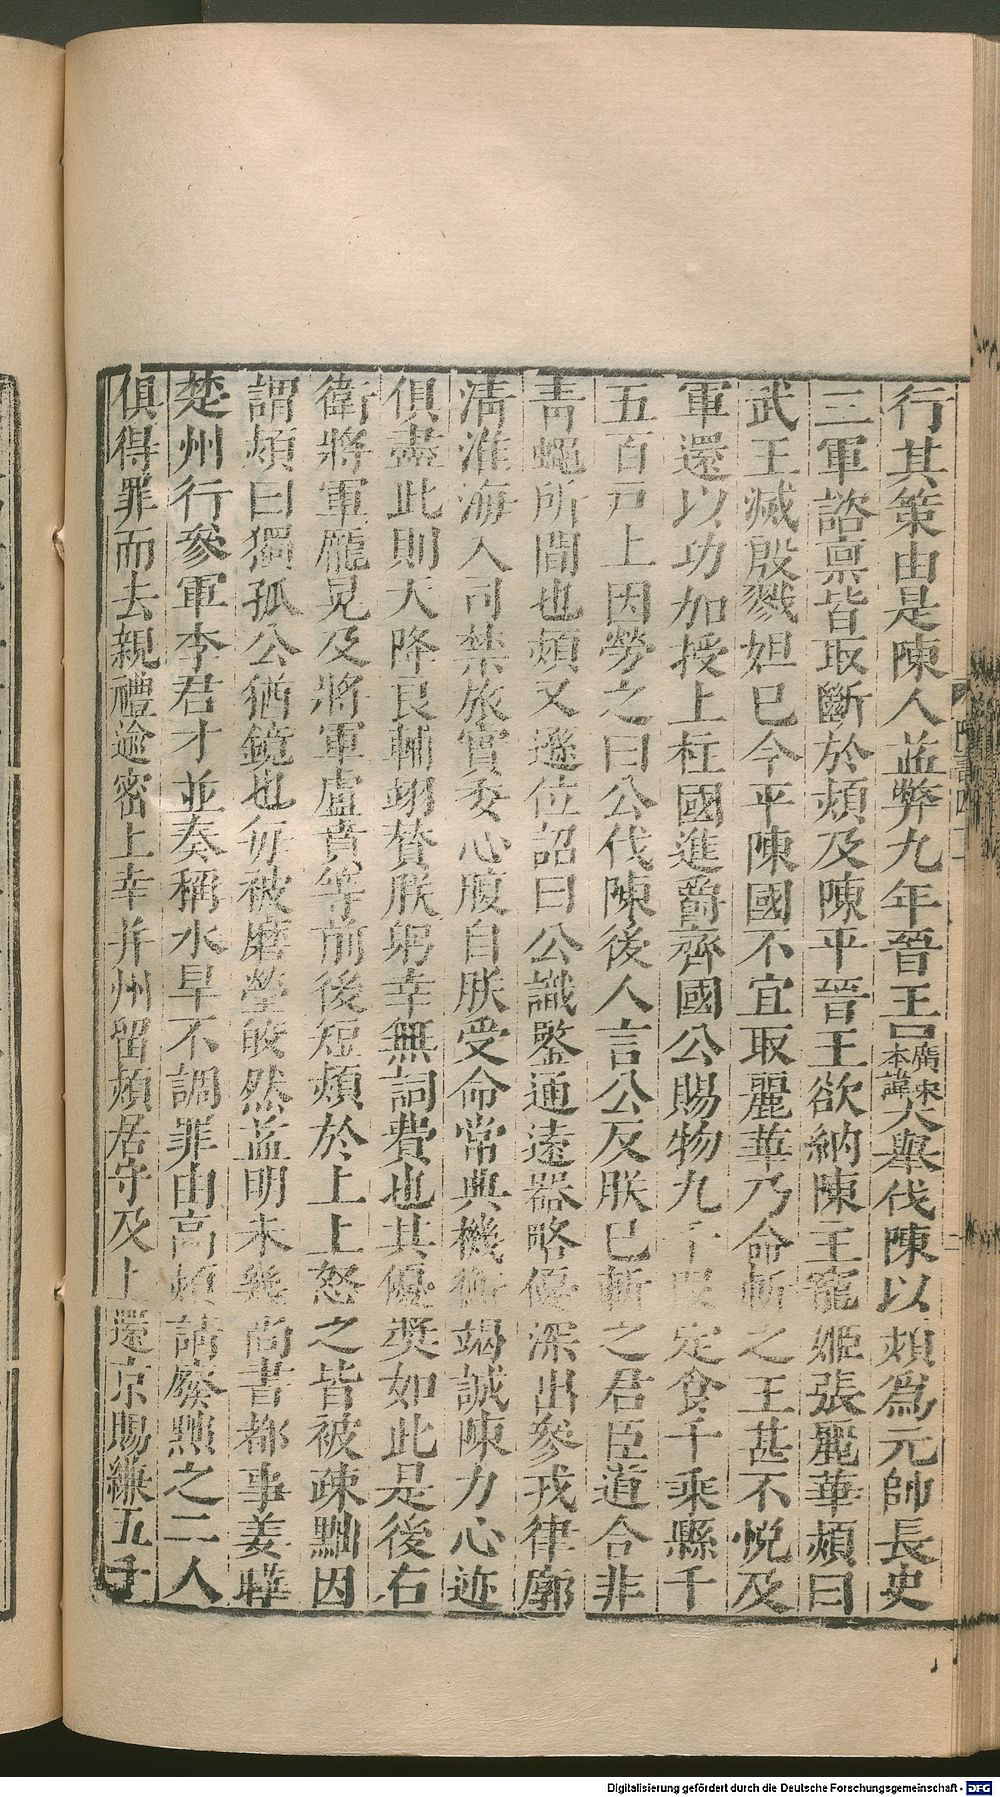 行其策由是陳人益弊九年晉王呂廣宋本諱大舉伐陳以熲爲元帥長史
三軍諮禀皆取斷於熲及陳平晉王欲納陳主寵姬張麗華熲曰
武王滅殷戮妲已今平陳國不宜取麗華乃命斬之王甚不悅及
軍還以功加授上柱國進爵齊國公賜物九千叚定食千乘縣千
五百戸上因勞之曰公伐陳後人言公反朕已斬之君臣道合非
靑蠅所間也熲又遜位詔曰公識鑒通遠器略優深出參戎律廓
淸淮海入司禁旅實委心腹自朕受命常典機衡竭誠陳力心迹
俱盡此則天降良輔翊贊朕躬幸無詞費也其優奬如此是後右
衛將軍龐晃及將軍盧賁等前後短熲於上上怒之皆被疎黜因
謂熲曰獨孤公猶鏡也每被磨瑩皎然益明未幾尚書都事姜曄
楚州行參軍李君才並奏稱水旱不調罪由高熲請廢黜之二人
俱得罪而去親禮逾密上幸并州留熲居守及上還京賜縑五千
Digitalisierung gefördert durch die Deutsche Forschungsgemeinschaft - DFG